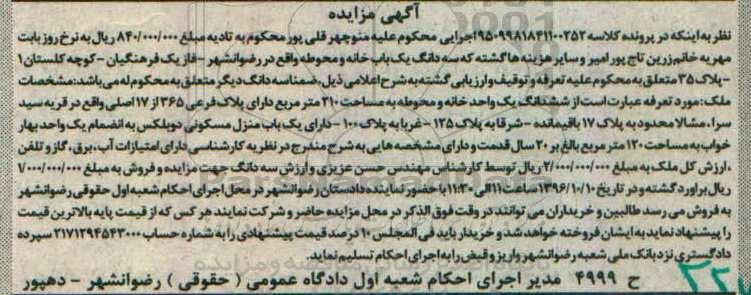 آگهی مزایده
نظر به اینکه در پرونده کلاسه ۹۵۰۹۹۸۱۸۴۱۱۰۰۲۵۲ اجرایی محکوم علیه منوچهر قلی پور محکوم به تادیه مبلغ ۸۴۰/۰۰۰/۰۰۰ ریال به نرخ روز بابت
مهریه خانم زرین تاج پور امیر و سایر هزینه ها گشته که سه دانگ یک باب خانه و محوطه واقع در رضوانشهر - فاز یک فرهنگیان - کوچه کلستان ۱
- پلاک ۳۵ متعلق به محکوم علیه تعرفه و توقیف و ارزیابی گشته به شرح اعلامی ذیل، ضمنا سه دانگ دیگر متعلق به محکوم له می باشد: مشخصات
ملک: مورد تعرفه عبارت است از ششدانگ یک واحد خانه و محوطه به مساحت ۲۱۰ متر مربع دارای پلاک فرعی ۳۶۵ از ۱۷ اصلی واقع در قریه سید
سرا، مشالا محدود به پلاک ۱۷ باقیمانده - شرقا به پلاک ۱۳۵ - غربا به پلاک ۱۰۰ - دارای یک باب منزل مسکونی دوبلکس به انضمام یک واحد بهار
خواب به مساحت ۱۲۰ متر مربع بالغ بر ۲۰ سال قدمت و دارای مشخصه هایی به شرح مندرج در نظریه کارشناسی دارای امتیازات آب، برق، گاز و تلفن
، ارزش کل ملک به مبلغ ۲/۰۰۰/۰۰۰/۰۰۰ ریال توسط کارشناس مهندس حسن عزیزی و ارزش سه دانگ جهت مزایده و فروش به مبلغ ۱/۰۰۰/۰۰۰/۰۰۰
ریال براورد گشته و در تاریخ ۱۳۹۶/۱۰/۱۰ ساعت ۱۱ الی ۱۱:۳۰ با حضور نماینده دادستان رضوانشهر در محل اجرای احکام شعبه اول حقوقی رضوانشهر
به فروش می رسد طالبین و خریداران می توانند در وقت فوق الذکر در محل مزایده حاضر و شرکت نمایند هر کس که از قیمت پایه بالاترین قیمت
را پیشنهاد نماید به ایشان فروخته خواهد شد و خریدار باید فی المجلس ۱۰ درصد قیمت پیشنهادی را به شماره حساب ۲۱۷۱۲۹۴۵۴۳۰۰۰ سپرده
دادگستری نزد بانک ملی شعبه رضوانشهر واریز و قبض را به اجرای احکام تسلیم نماید.
ح ۴۹۹۹ مدیر اجرای احکام شعبه اول دادگاه عمومی ( حقوقی ) رضوانشهر - دهپور